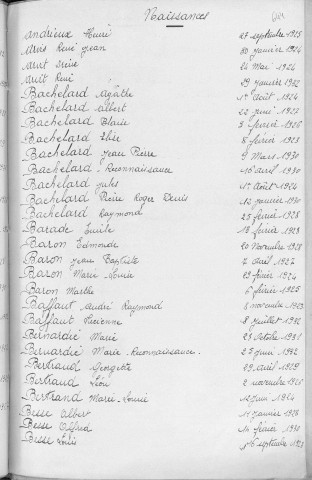 Naissances
Andrieux Henri
Arvis René Jean 20 janvier 1924
Avit 24 Mai 1924
Avit René 29 janvier 1922
Bachelard Agathe 1er Août 1924
Bachelard Albert 22 juin
Bachelard 3 février 1926
Bachelard 8 février 1923
Bachelard Jean Pierre 9 Mars 1930
Bachelard Reconnaissance 16 avril 1930
Bachelard Jules 1er Août 1924
Bachelard Pierre Roger Denis 12 janvier 1930
Bachelard Raymond 25 février 1928
Barade Emile 18 février 1923
Baron Edmonde 20 Novembre 1928
Baron Jean Baptiste 2 avril 1927
Baron Marie Louise 29 février 1924
Baron Marthe 6 février 1925
Baffaut André Raymond 6 novembre 1923
Baffaut 8 juillet 1926
Bernardie Marie 23 Octobre 1931
Bernardie Marie Reconnaissance. 25 juin 1932
Bertrand Georgette 29 avril 1929
Bertrand Léon 2 novembre
Bertrand Marie Louise 12 juin 1924
Besse Albert 14 janvier 1928
Besse Alfred 14 février 1930
Besse septembre 1923